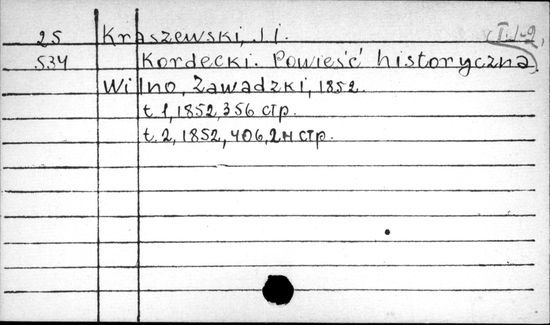 25 Kraszewski, J. I. (T. 1-2,
534 Kordecki. Powieść historyczna.
Wilno, Zawadzki, 1852.
t. 1, 1852, 356 стр.
t. 2, 1852, 406, 2н стр.